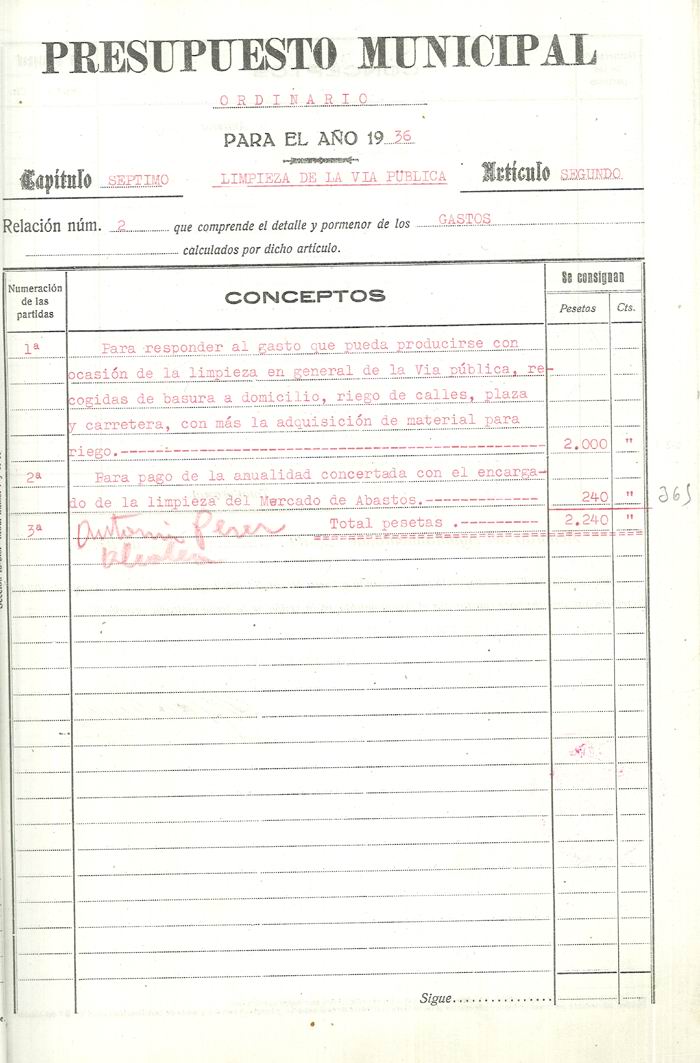 PRESUPUESTO MUNICIPAL
ORDINARIO
PARA EL AÑO 1936
Capítulo SEPTIMO LIMPIEZA DE LA VIA PUBLICA Artículo SEGUNDO.
Relación núm. 2 que comprende el detalle y pormenor de los GASTOS
calculados por dicho artículo.
Numeración de las partidas CONCEPTOS Se consignan
Pesetas Cts.
1ª Para responder al gasto que pueda producirse con
ocasión de la limpieza en general de la Via pública, re-
cogidas de basura a domicilio, riego de calles, plaza
y carretera, con más la adquisición de material para
riego.---------------------------------------- 2.000 "
2ª Para pago de la anualidad concertada con el encarga-
do de la limpieza del Mercado de Abastos.----------- 240 "
3ª Antonio Perez Total pesetas .--------- 2.240 "
Sigue